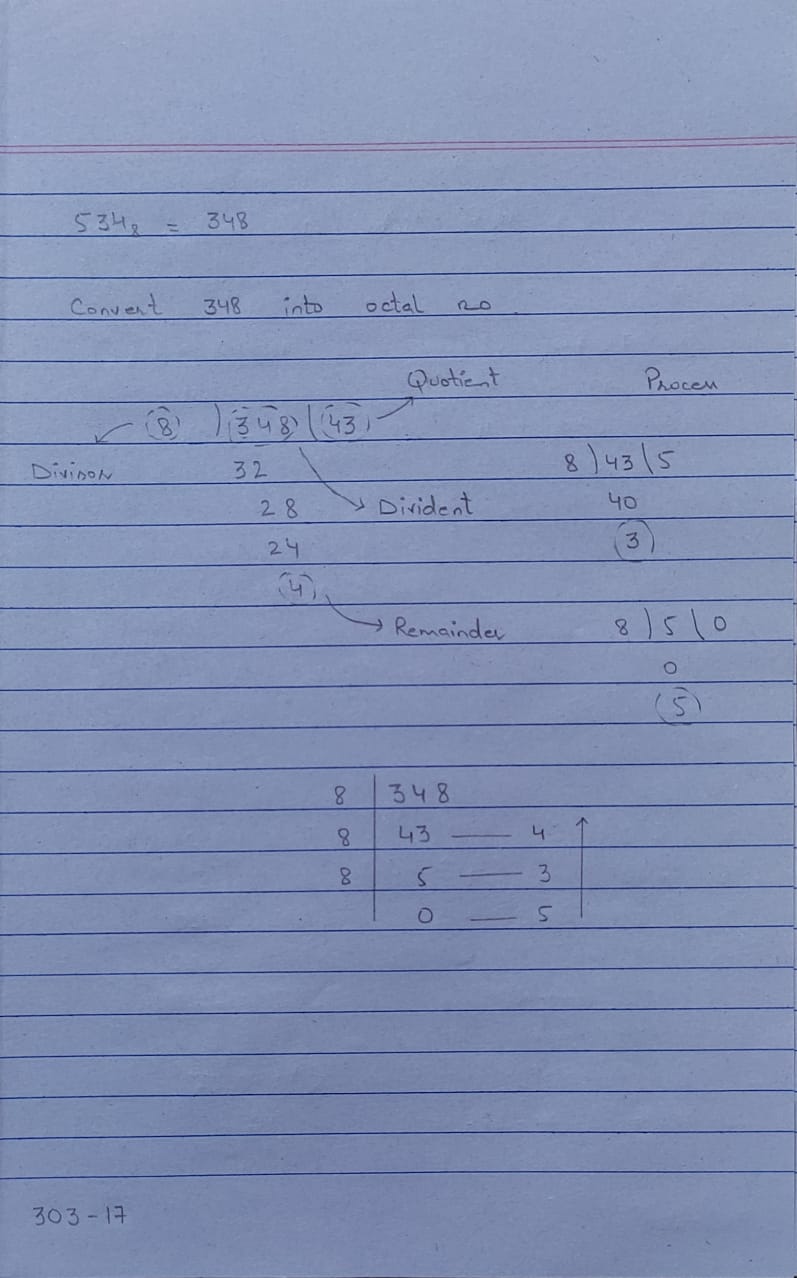 534₈ = 348
Convert 348 into octal no.
Quotient Process
8 ) 348 ( 43
Divison 32 8 ) 43 \ 5
28 Divident 40
24 3
4
Remainder 8 ) 5 \ 0
0
5
8 | 348
8 | 43 — 4
8 | 5 — 3
0 — 5
303-17